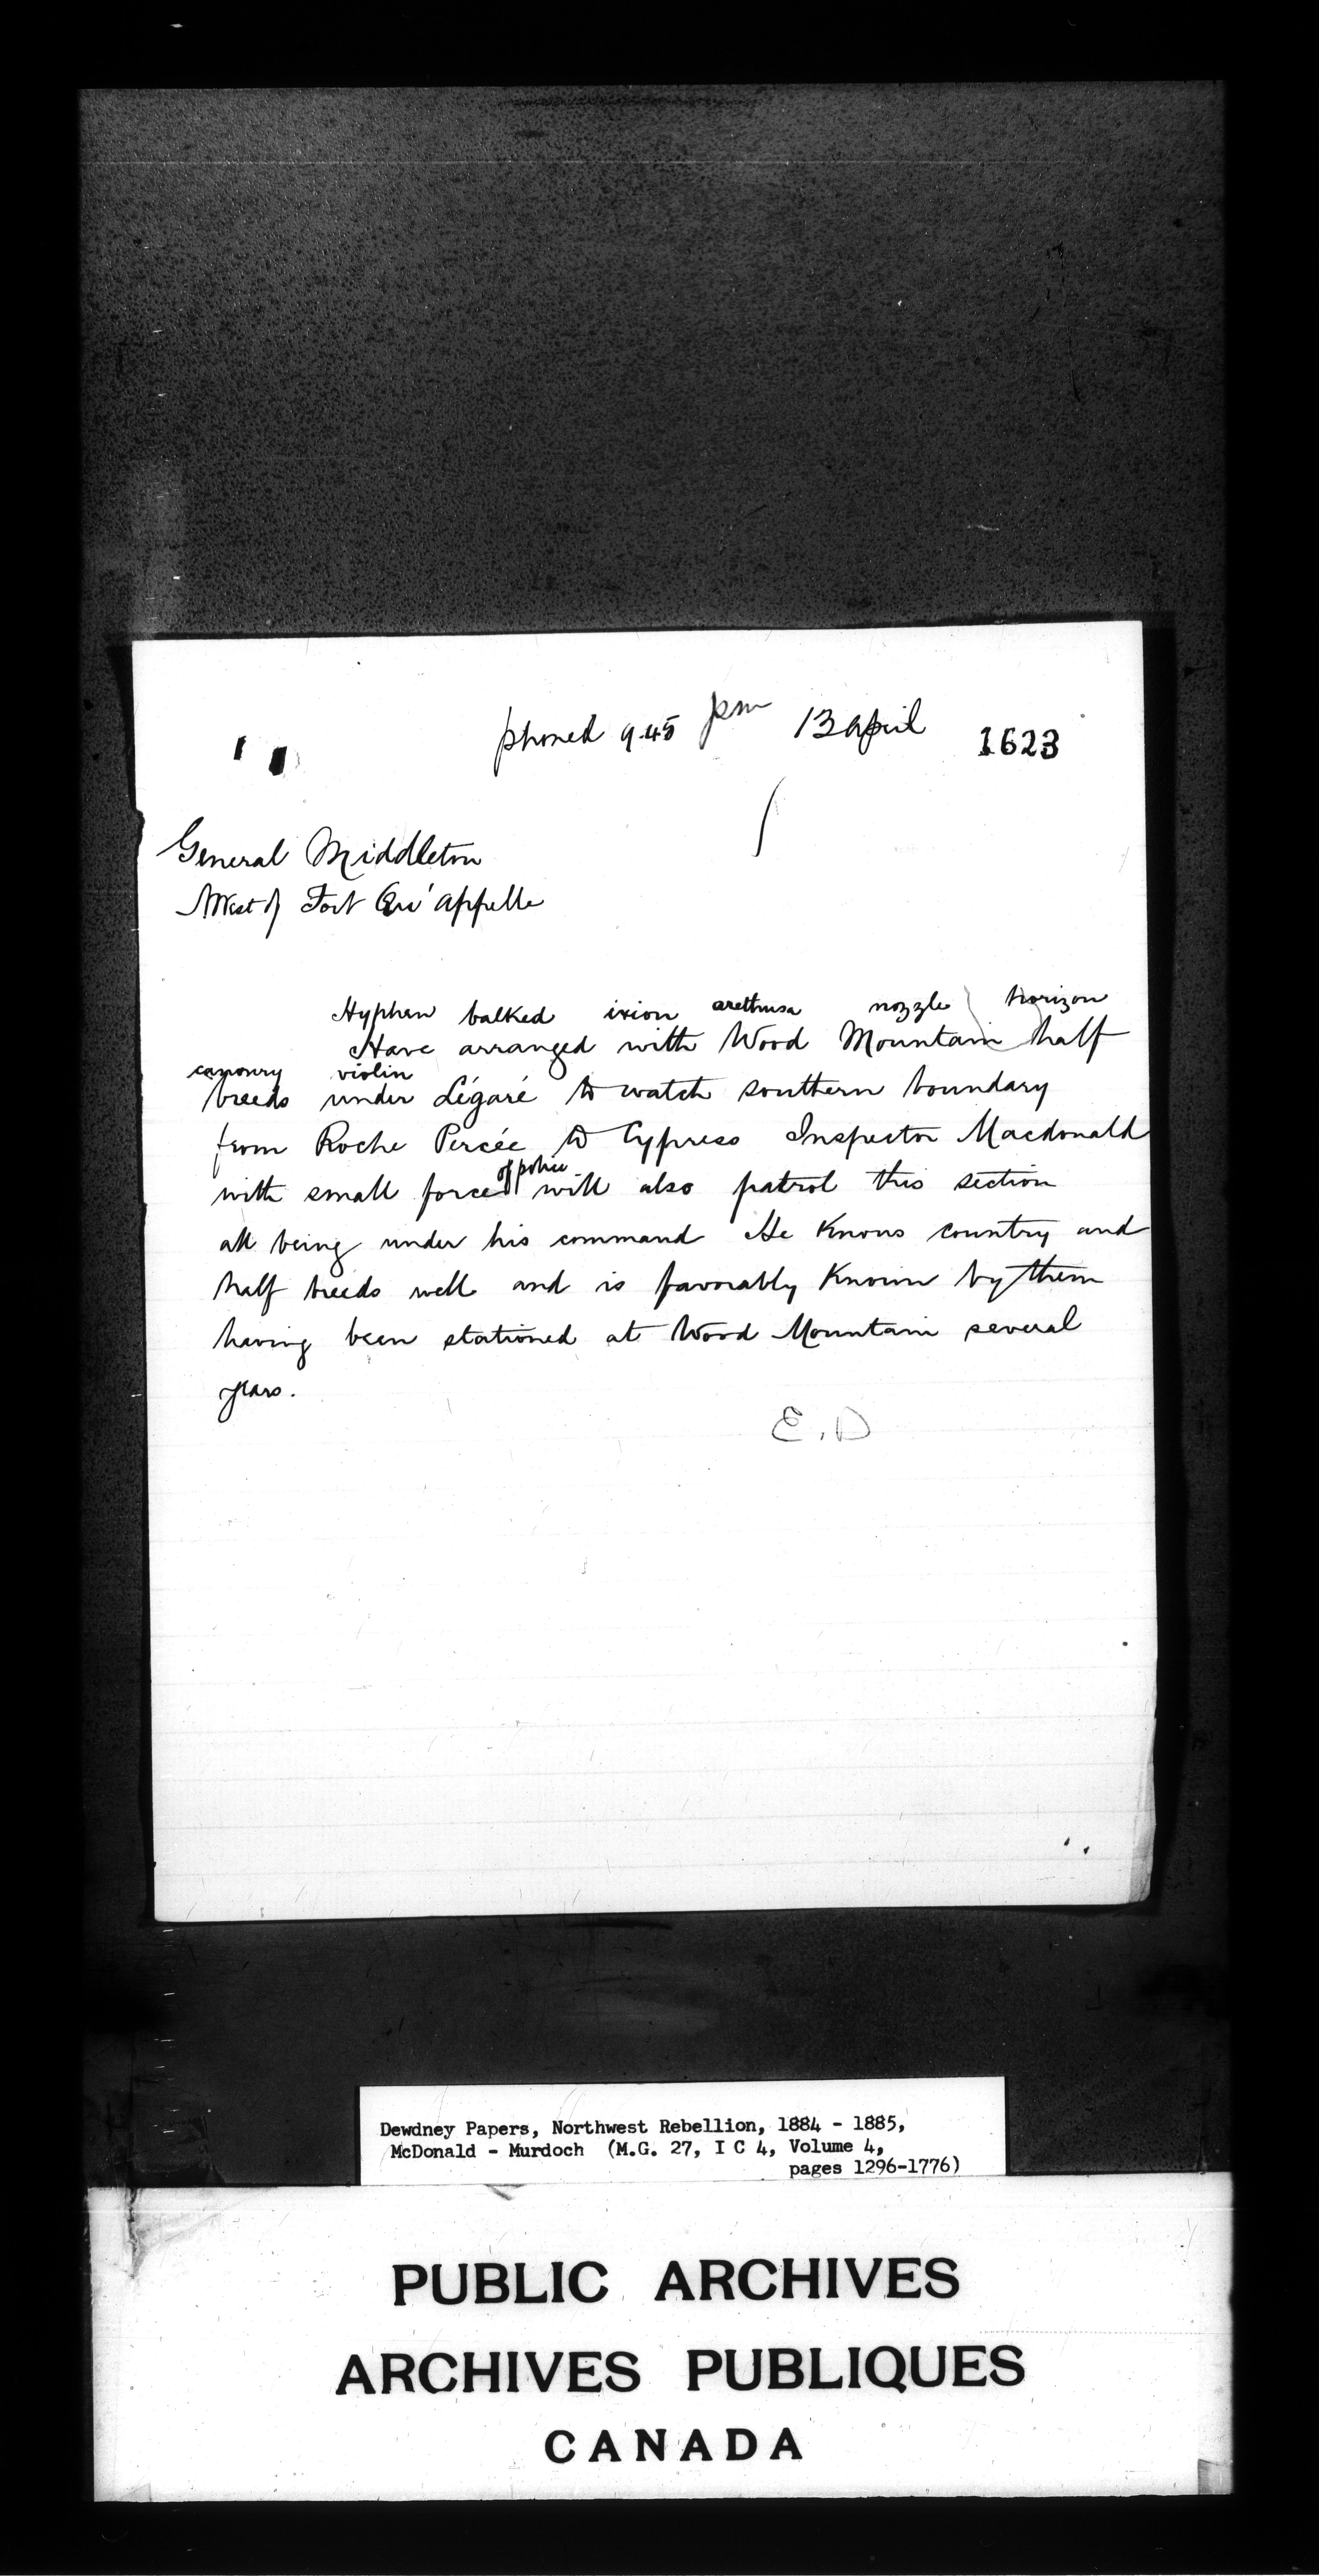 phoned 9.45 pm 13 april 1623
General Middleton
West of Fort Qu'appelle
Hyphen balked ixion arethusa nozzle horizon
Have arranged with Wood Mountain half
violin
breeds under Légaré to watch southern boundary
from Roche Percée to Cypress Inspector Macdonald
of police
with small force will also patrol this section
all being under his command He knows country and
half breeds well and is favorably known by them
having been stationed at Wood Mountain several
years.
E.D
Dewdney Papers, Northwest Rebellion, 1884 - 1885,
McDonald - Murdoch (M.G. 27, I C 4, Volume 4,
pages 1296-1776)
PUBLIC ARCHIVES
ARCHIVES PUBLIQUES
CANADA